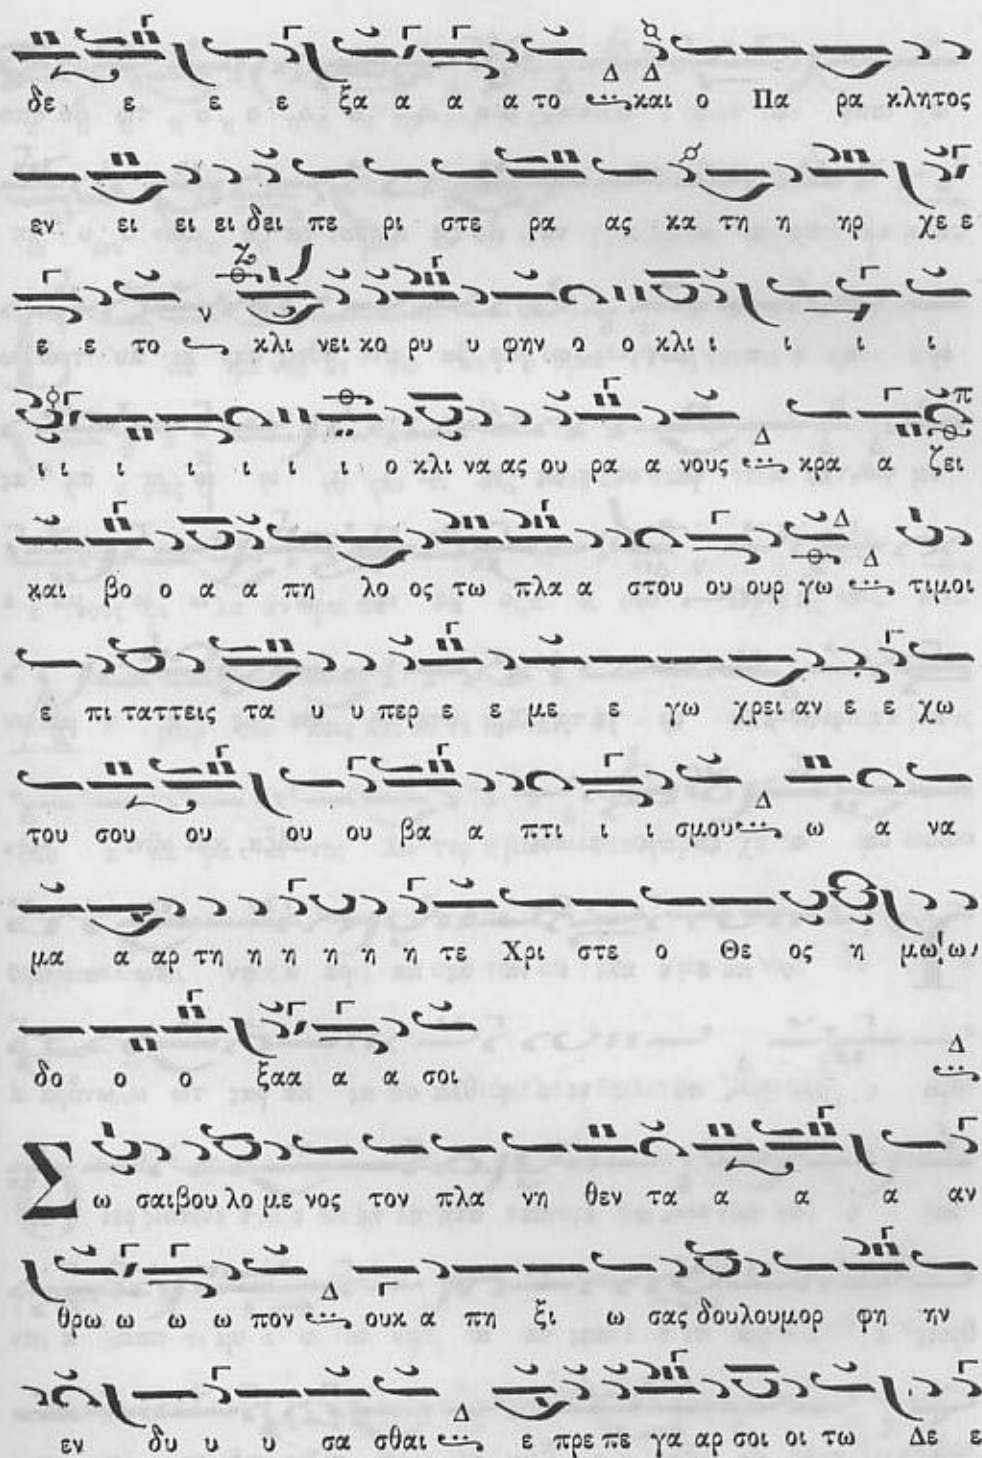 δε ε ε ε ξα α α α το και ο Πα ρα κλητος
εν ει ει ει δει πε ρι στε ρα ας κα τη η ηρ χε ε
ε ε το κλι νει κο ρυ υ φην ο ο κλι ι ι ι ι
ι ι ι ι ι ι ι ο κλι να ας ου ρα α νους κρα α ζει
και βο ο α α πη λο ος τω πλα α στου ου ουρ γω τιμοι
ε πι ταττεις τα υ υ περ ε ε με ε γω χρει αν ε ε χω
του σου ου ου ου βα α πτι ι ι σμου ω α να
μα α αρ τη η η η η η τε Χρι στε ο Θε ος η μω ων
δο ο ο ξαα α α σοι
Σ ω σαι βου λο με νος τον πλα νη θεν τα α α α αν
θρω ω ω ω πον ουκ α πη ξι ω σας δουλου μορ φη ην
εν δυ υ υ σα σθαι ε πρε πε γα αρ σοι οι τω Δε ε